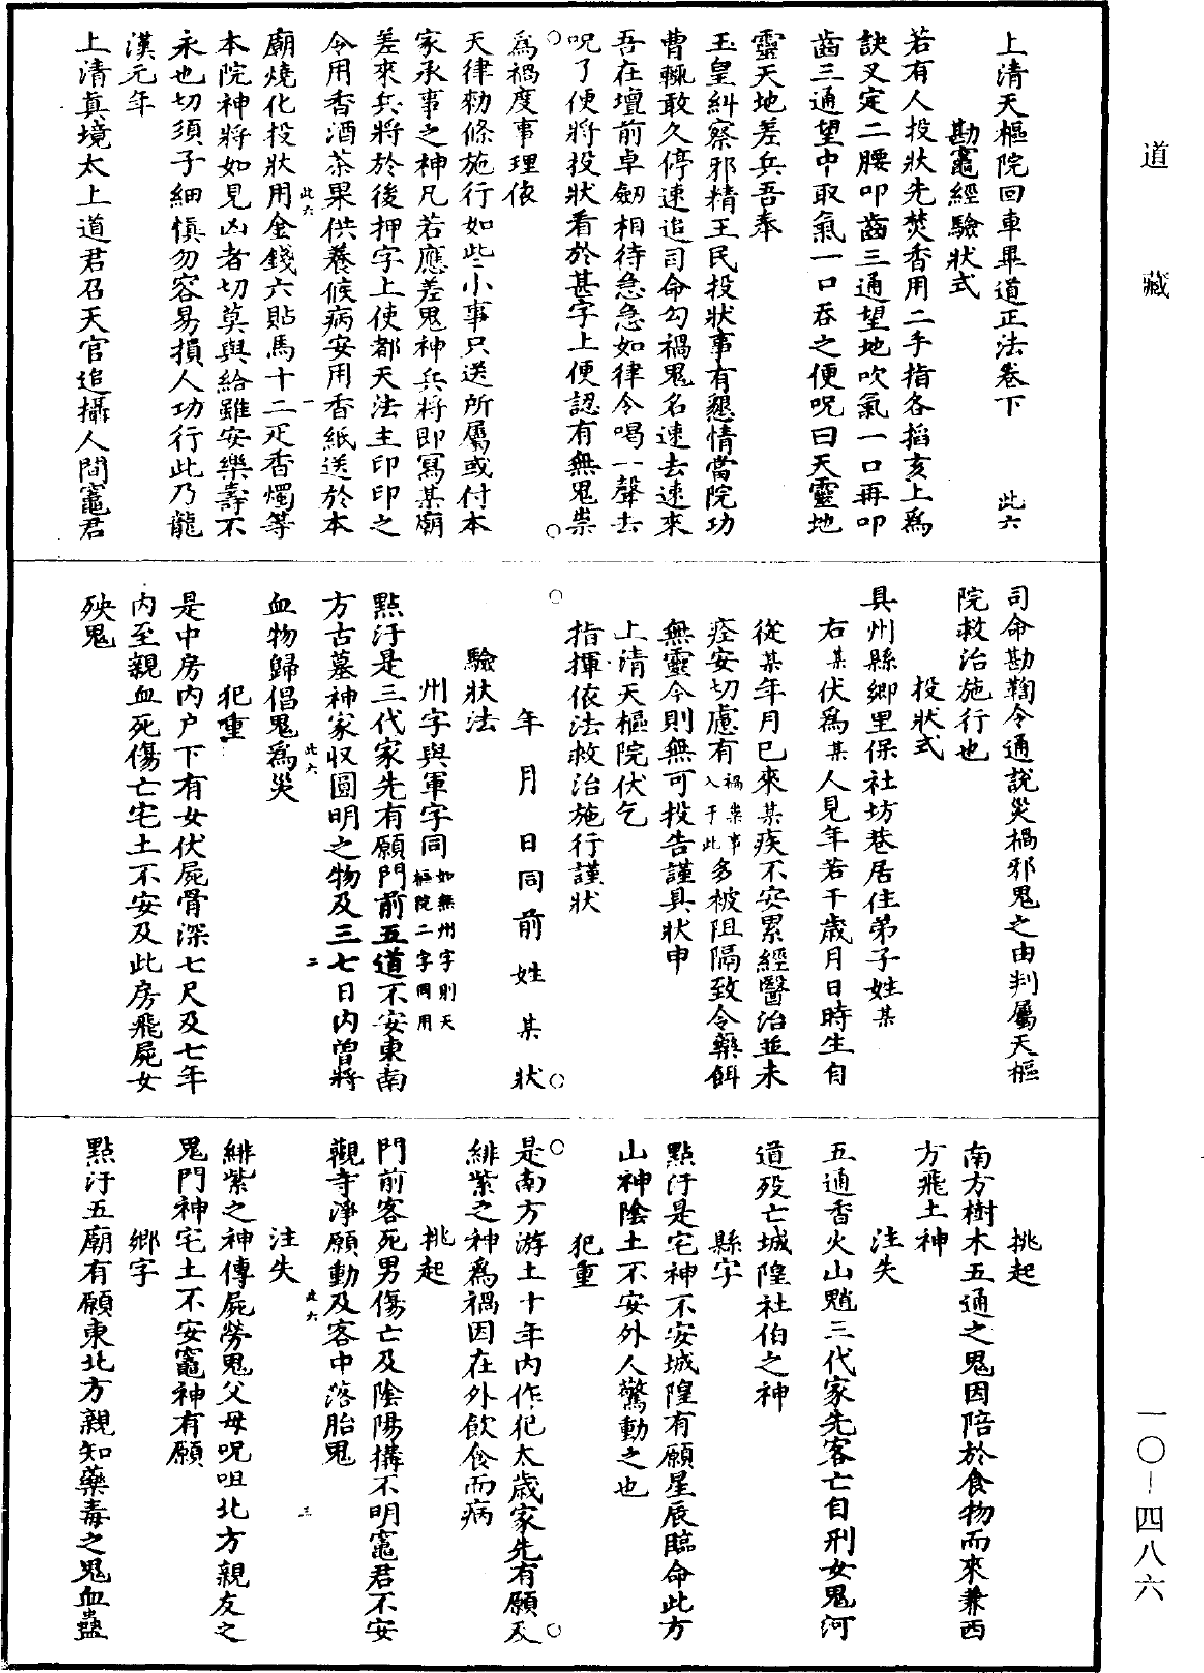 道藏
上清天樞院回車畢道正法卷下　此六
勘竈經驗狀式
若有人投狀先焚香用二手指各搯亥上爲
訣叉定二腰叩齒三通望地吹氣一口再叩
齒三通望中取氣一口吞之便呪曰天靈地
靈天地差兵吾奉
玉皇糾察邪精王民投狀事有懇情當院功
曹輙敢久停速追司命勾禍鬼名速去速來
吾在壇前卓劒相待急急如律令喝一聲去
呪了便將投狀看於甚字上便認有無鬼祟
爲禍度事理依
天律勑條施行如些小事只送所屬或付本
家承事之神凡若應差鬼神兵將即寫某廟
差來兵將於後押字上使都天法主印印之
令用香酒茶果供養候病安用香紙送於本
廟燒化投狀用金錢六貼馬十二疋香燭等
本院神將如見凶者切莫與給雖安樂壽不
永也切須子細慎勿容易損人功行此乃龍
漢元年
上清真境太上道君召天官追攝人間竈君
司命勘鞫令通說災禍邪鬼之由判屬天樞
院救治施行也
投狀式
具州縣鄉里保社坊巷居住弟子姓某
右某伏爲某人見年若干歲月日時生自
從某年月已來某疾不安累經醫治並未
痊安切慮有禍祟事入于此多被阻隔致令藥餌
無靈今則無可投告謹具狀申
上清天樞院伏乞
指揮依法救治施行謹狀
年月日同前姓某狀
驗狀法
州字與軍字同如無州字則天樞院二字同用
點汙是三代家先有願門前五道不安東南
方古墓神家収圓明之物及三七日內曾將
血物歸倡鬼爲災
犯重
是中房內户下有女伏屍骨深七尺及七年
內至親血死傷亡宅土不安及此房飛屍女
殃鬼
挑起
南方樹木五通之鬼因陪於食物而來兼西
方飛土神
注失
五通香火山魈三代家先客亡自刑女鬼河
道殁亡城隍社伯之神
縣字
點汙是宅神不安城隍有願星辰臨命此方
山神陰土不安外人驚動之也
犯重
是南方游土十年內作犯太歲家先有願及
緋紫之神爲禍因在外飲食而病
挑起
門前客死男傷亡及陰陽搆不明竈君不安
觀寺淨願動及客中落胎鬼
注失
緋紫之神傳屍勞鬼父母呪咀北方親友之
鬼門神宅土不安竈神有願
鄉字
點汙五廟有願東北方親知藥毒之鬼血蠱
一〇-四八六